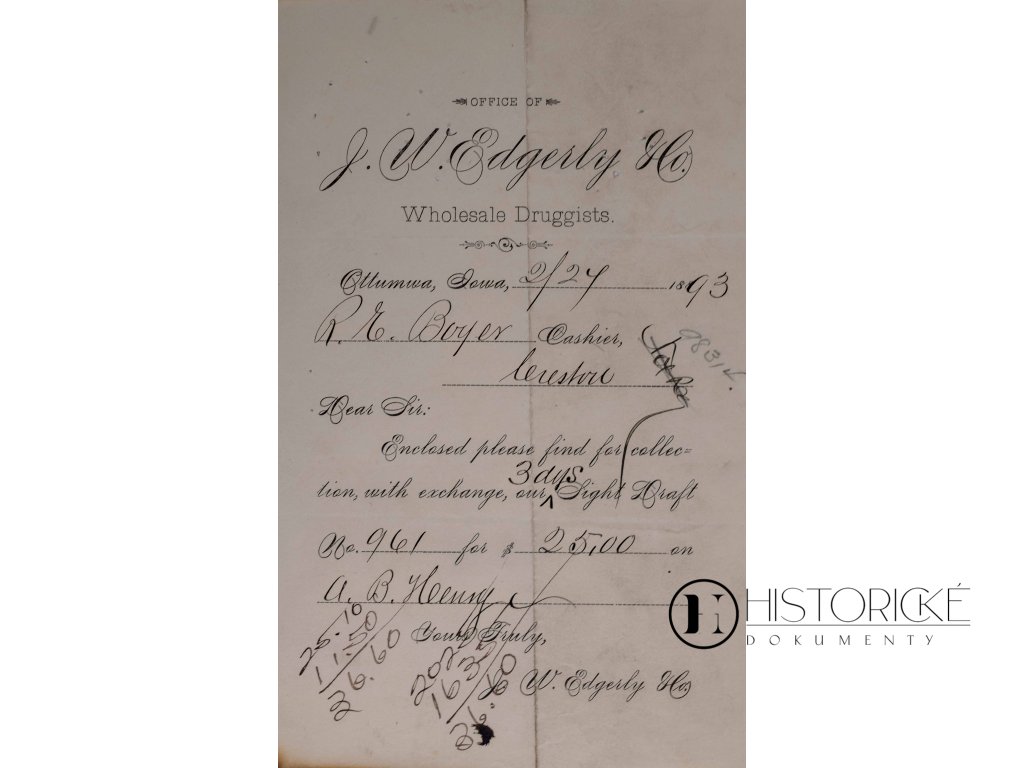 OFFICE OF
J. W. Edgerly & Co.
Wholesale Druggists.
Ottumwa, Iowa, 2/27 1893
R. E. Boyer Cashier,
Creston
Dear Sir:
Enclosed please find for collec=
3 dys
tion, with exchange, our ^ Sight Draft
No. 961 for $ 25,00 on
A. B. Henry
Yours Truly,
J. W. Edgerly & Co.
25.10
11.50
36.60
HISTORICKÉ
DOKUMENTY